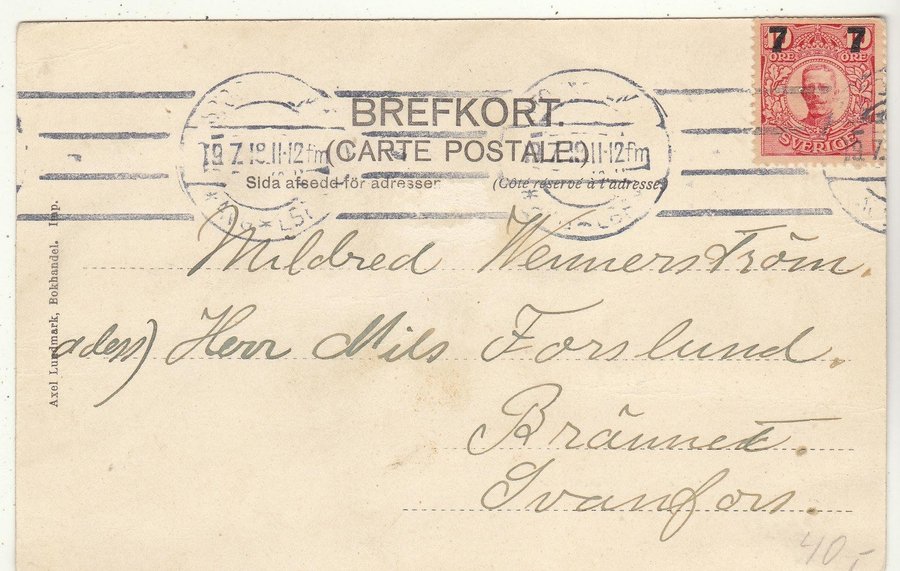 10 10
7 7
ÖRE ÖRE
SVERIGE
BREFKORT.
(CARTE POSTALE)
19.7.18.11-12fm 19.7.18.11-12fm
Sida afsedd för adressen (Côté réservé à l'adresse)
Mildred Wennerström.
adess) Herr Nils Forslund.
Brännet.
Svanfors.
Axel Lundmark, Bokhandel. Imp.
40,-